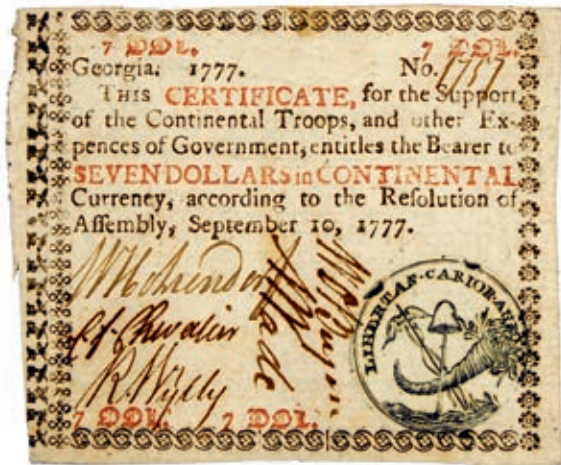 7 DOL. 7 DOL.
Georgia. 1777. No. 1757
THIS CERTIFICATE, for the Support
of the Continental Troops, and other Ex-
pences of Government, entitles the Bearer to
SEVEN DOLLARS in CONTINENTAL
Currency, according to the Resolution of
Assembly, September 10, 1777.
Wade
R Wylly
LIBERTAS CARIOR AU
7 DOL. 7 DOL.